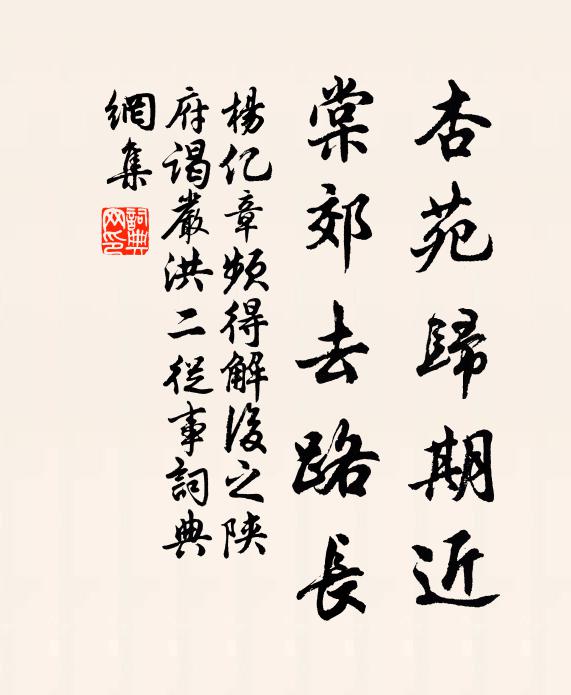 杏苑歸期近
棠郊去路長
楊億章頻得解後之陝
府謁嚴洪二從事詞典
網集
詞典网印